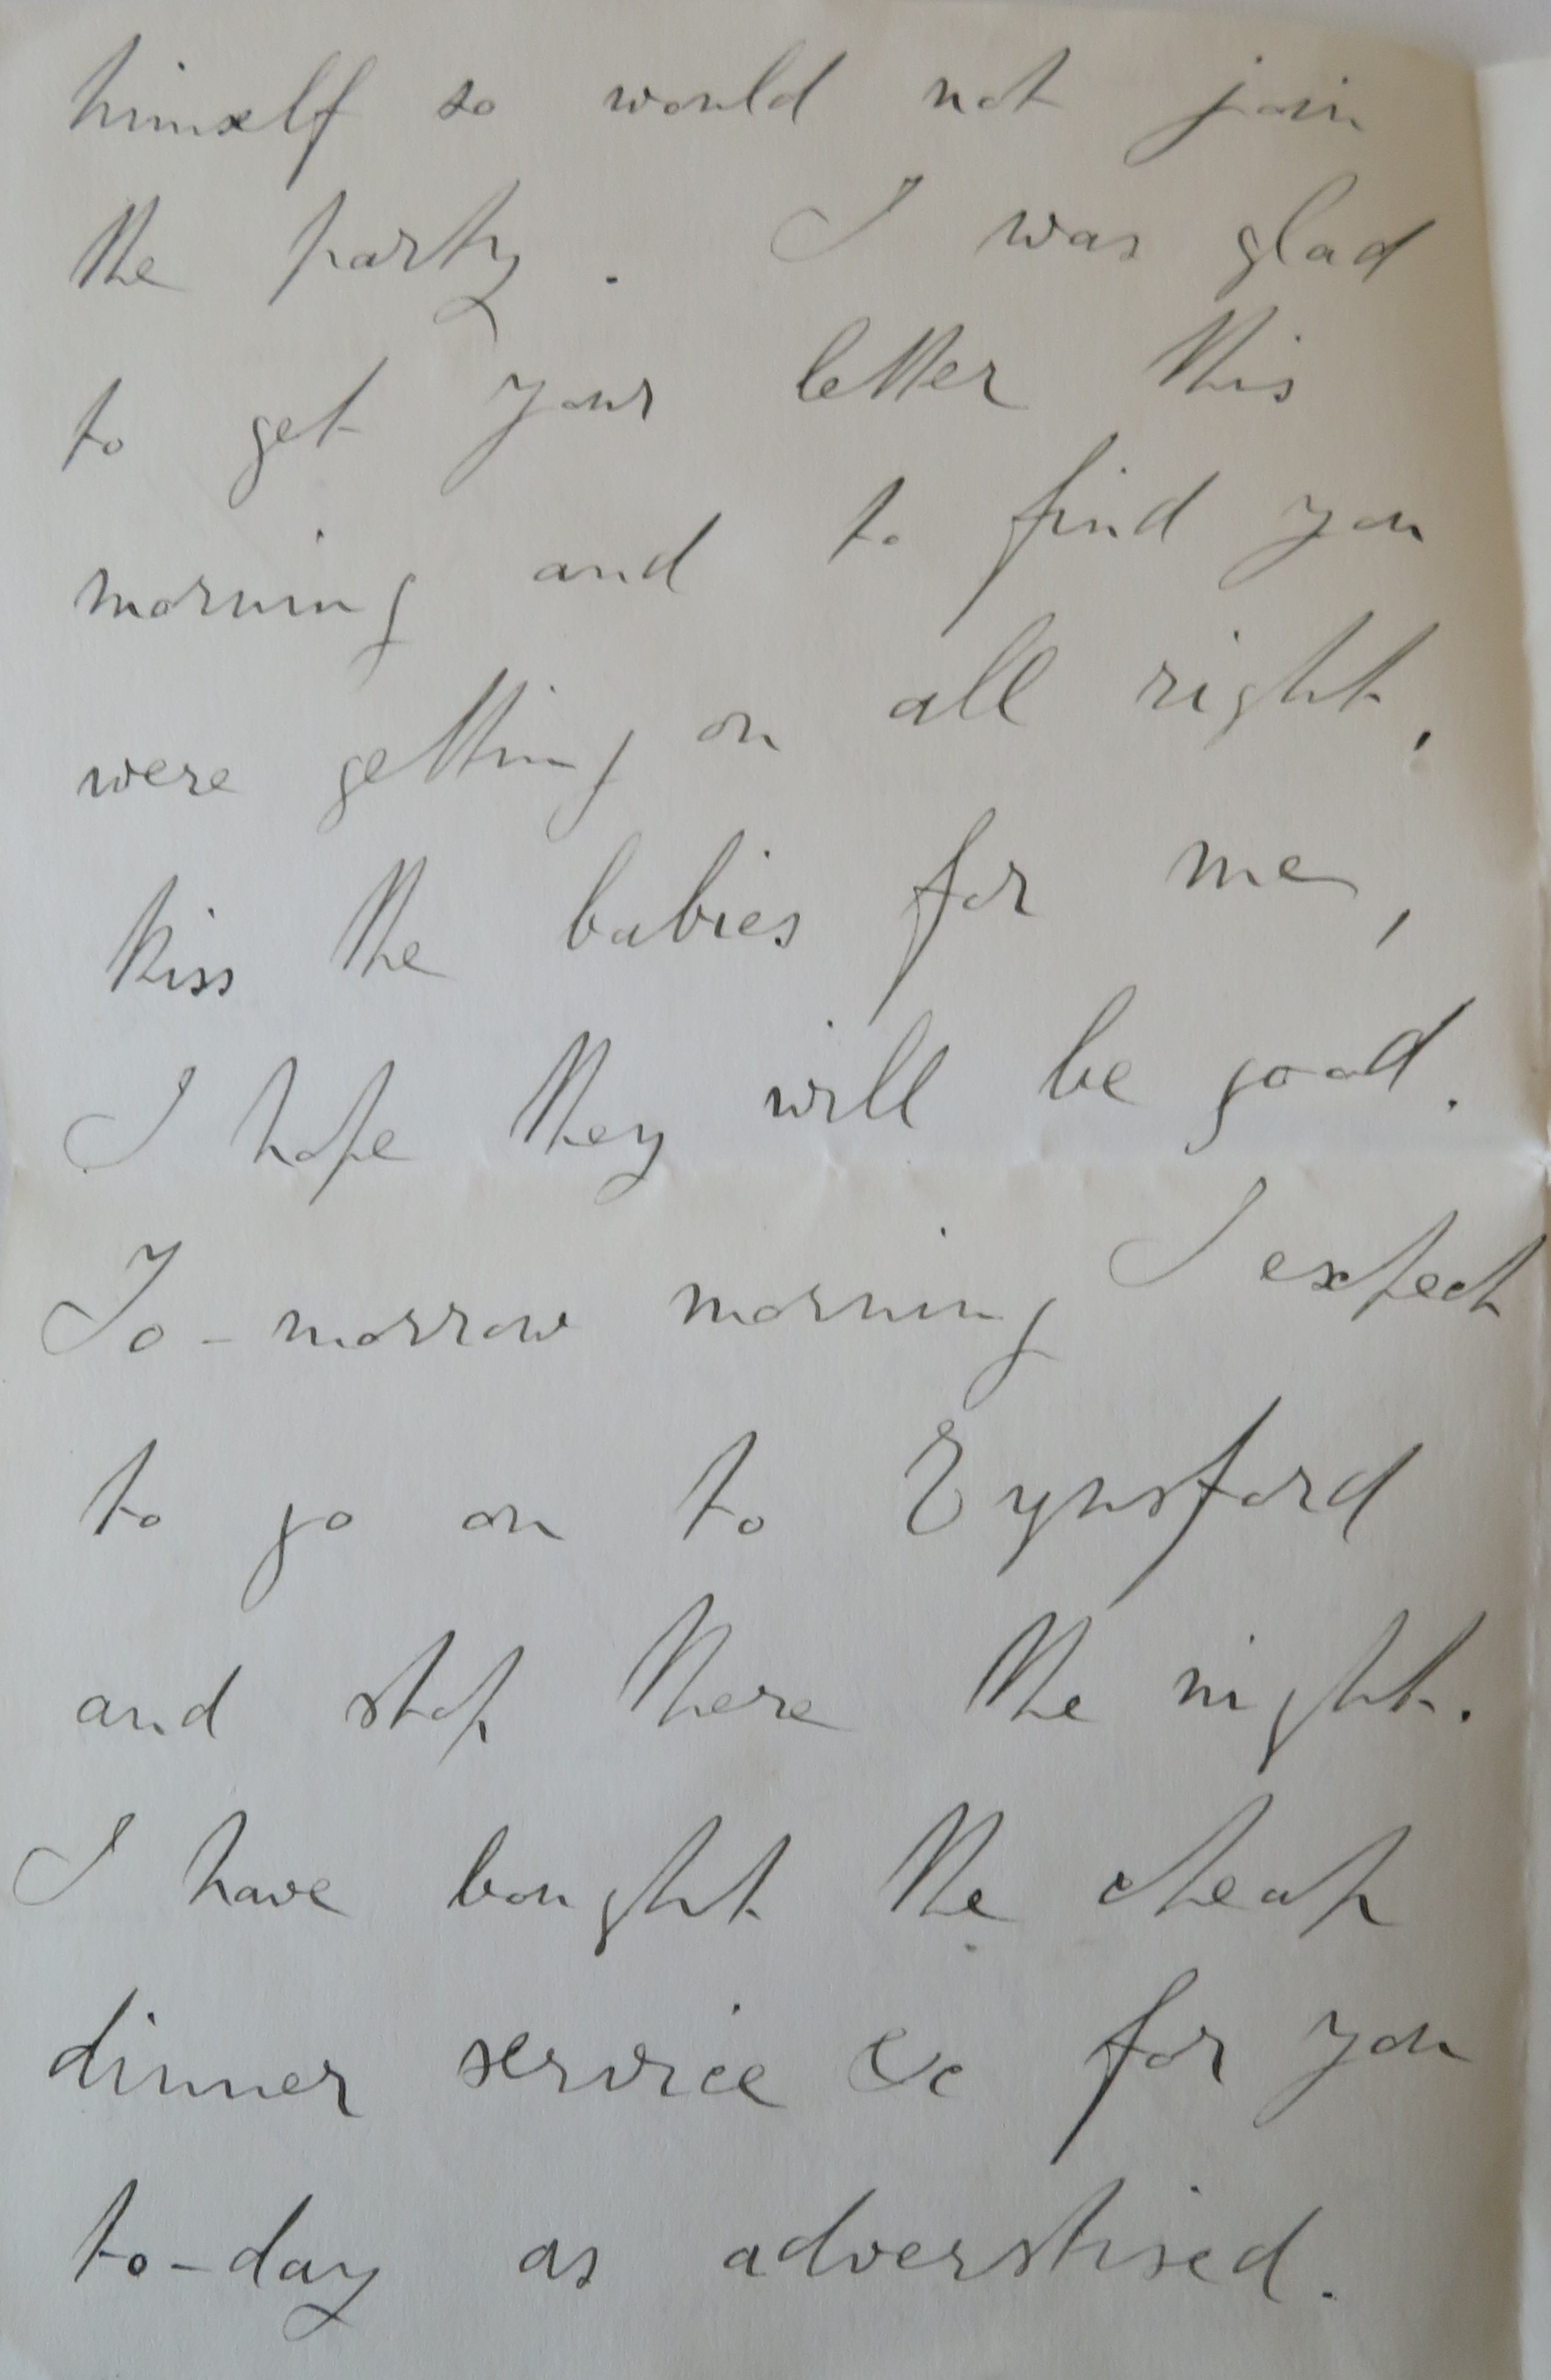 himself so would not join
the party. I was glad
to get your letter this
morning and to find you
were getting on all right,
kiss the babies for me,
I hope they will be good.
To-morrow morning I expect
to go on to Eynsford
and stop there the night.
I have bought the cheap
dinner service &c for you
to-day as adverstised.